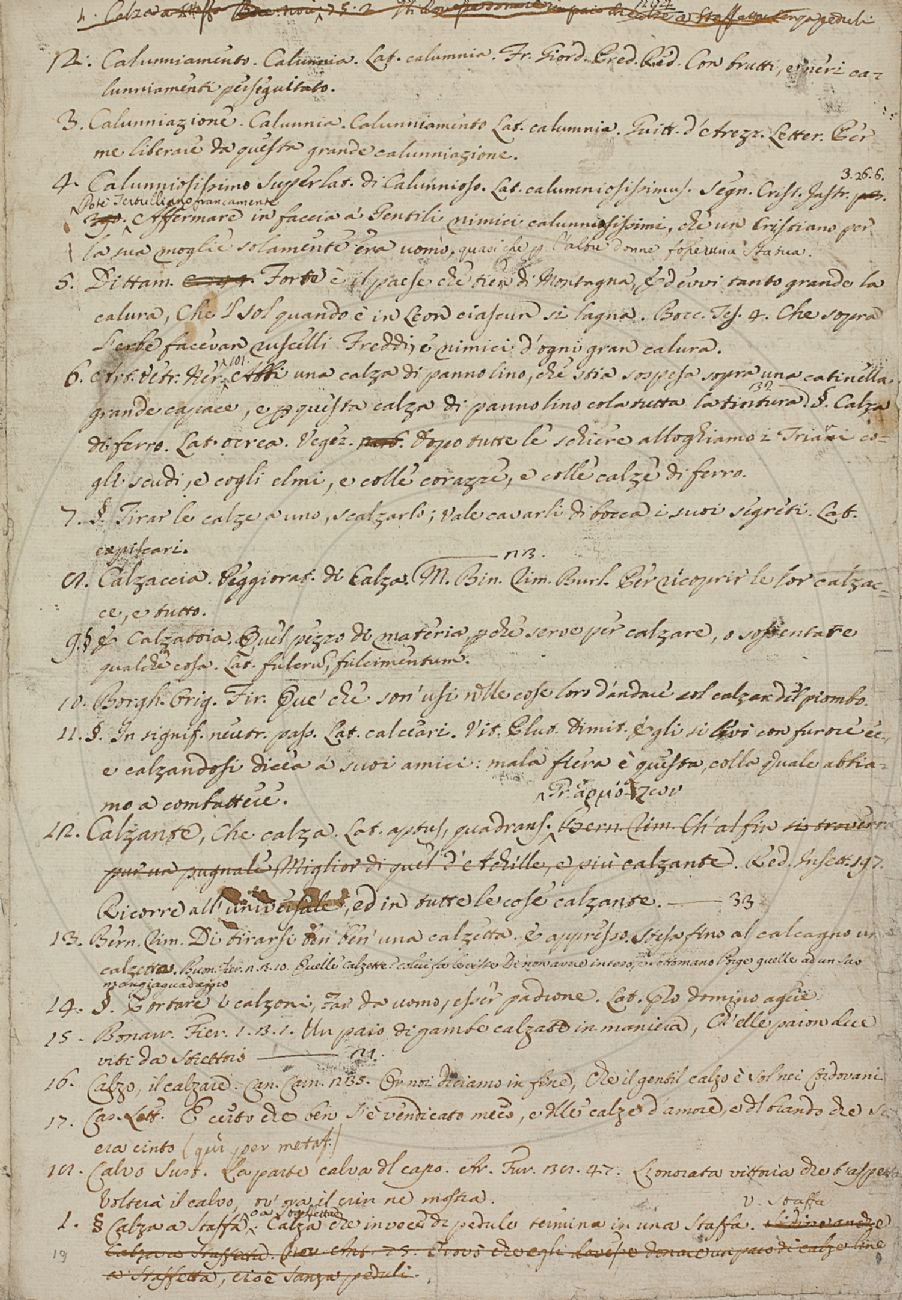 1. Calza a Staffa Bocc. nov. 75. 2. paio di calze a Staffa senza peduli
2. Calunniamento. Calunnia. Lat. calumnia. Fr. Giord. Pred. Red. Con brutti, e neri ca-
lunniamenti perseguitato.
3. Calunniazione. Calunnia. Calunniamento Lat. calumnia. Guitt. d'Arezz. Letter. Per
me liberare da questa grande calunniazione.
4. Calunniosissimo Superlat. di Calunnioso. Lat. calumniosissimus. Segn. Crist. Instr. 3. 26. 6.
Potè Tertulliano francamente
Affermare in faccia a' Gentili nimici calunniosissimi, che un Cristiano per
la sua moglie solamente era uomo, quasi che p l'altre donne fosse una statua.
5. Dittam. Forte è il paese che tien di Montagna, E déivi tanto grande la
calura, Che 'l sol quando è in Leon ciascun si lagna. Bocc. Tes. 4. Che sopra
l'erbe facevan ruscelli Freddi, e nimici d'ogni gran calura.
6. Art. Vetr. Ner. 101. Abbi una calza di panno lino, che stia sospesa sopra una catinella
grande capace, e p questa calza di panno lino cola tutta la tintura. 32 §. Calza
di ferro. Lat. ocrea. Vegez. Dopo tutte le schiere alloghiamo i Triari co-
gli scudi, e cogli elmi, e colle corazze, e colle calze di ferro.
7. §. Tirar le calze a uno, scalzarlo; vale cavarli di bocca i suoi segreti. Lat.
expiscari.
8. Calzaccia. Peggiorat. di Calza. M. Bin. Rim. Burl. Per ricoprir le lor calzac-
ce, e tutto.
9. § E Calzatoia. Quel pezzo di materia, che serve per calzare, o sostentare
qualche cosa. Lat. fulcrum, fulcimentum.
10. Borgh. Orig. Fir. Que' che son' usi nelle cose loro d'andare col calzar del piombo.
11. §. In signif. neutr. pass. Lat. calceari. Vit. Plut. Dimit. Egli si levò con furore ec.
e calzandosi dicea a' suoi amici: mala fiera è questa, colla quale abbia-
mo a combattere.
12. Calzante, Che calza. Lat. aptus, quadrans. Gr. Bern. Rim. Ch' al fin si trovera
pur un pugnale Miglior di quel d'Achille, e più calzante. Red. Insett. 147.
Ricorre all' universale, ed in tutte le cose calzante. 33
13. Bern. Rim. Di tirarsi ben ben' una calzetta. E appresso. Stesa fino al calcagno un
calzetta. Buon. Fier. Quelle calzette
mangiaguadagno
14. §. Portare i calzoni, Far da uomo, esser padrone. Lat. pro domino agere.
15. Bonarr. Fier. 1. 3. 1. Un paio di gambe calzate in maniera, Ch'elle paion due
viti da Strettoio
16. Calzo, il calzare. Can. Carn. Or noi diciamo in fine, Che il gentil calzo è sol nei Cordovani
17. Cas. Lett. È certo che ben s'è vendicato meco, e delle calze d'amore, e del brando che s'
era cinto (qui per metaf.)
18. Calvo Sust. La parte calva del capo. Ar. Fur. 47. L'onorata vittoria che t'aspetta
Volterà il calvo, ov' ora il crin ne mostra.
1. § Calza a Staffa, o a Staffetta. Calza che in vece di pedule termina in una Staffa. v. Staffa
Calza a Staffetta. Nov. Ant. 75. Trovò che egli dovesse donare un paio di calze line
a Staffetta, cioè sanza peduli.
19